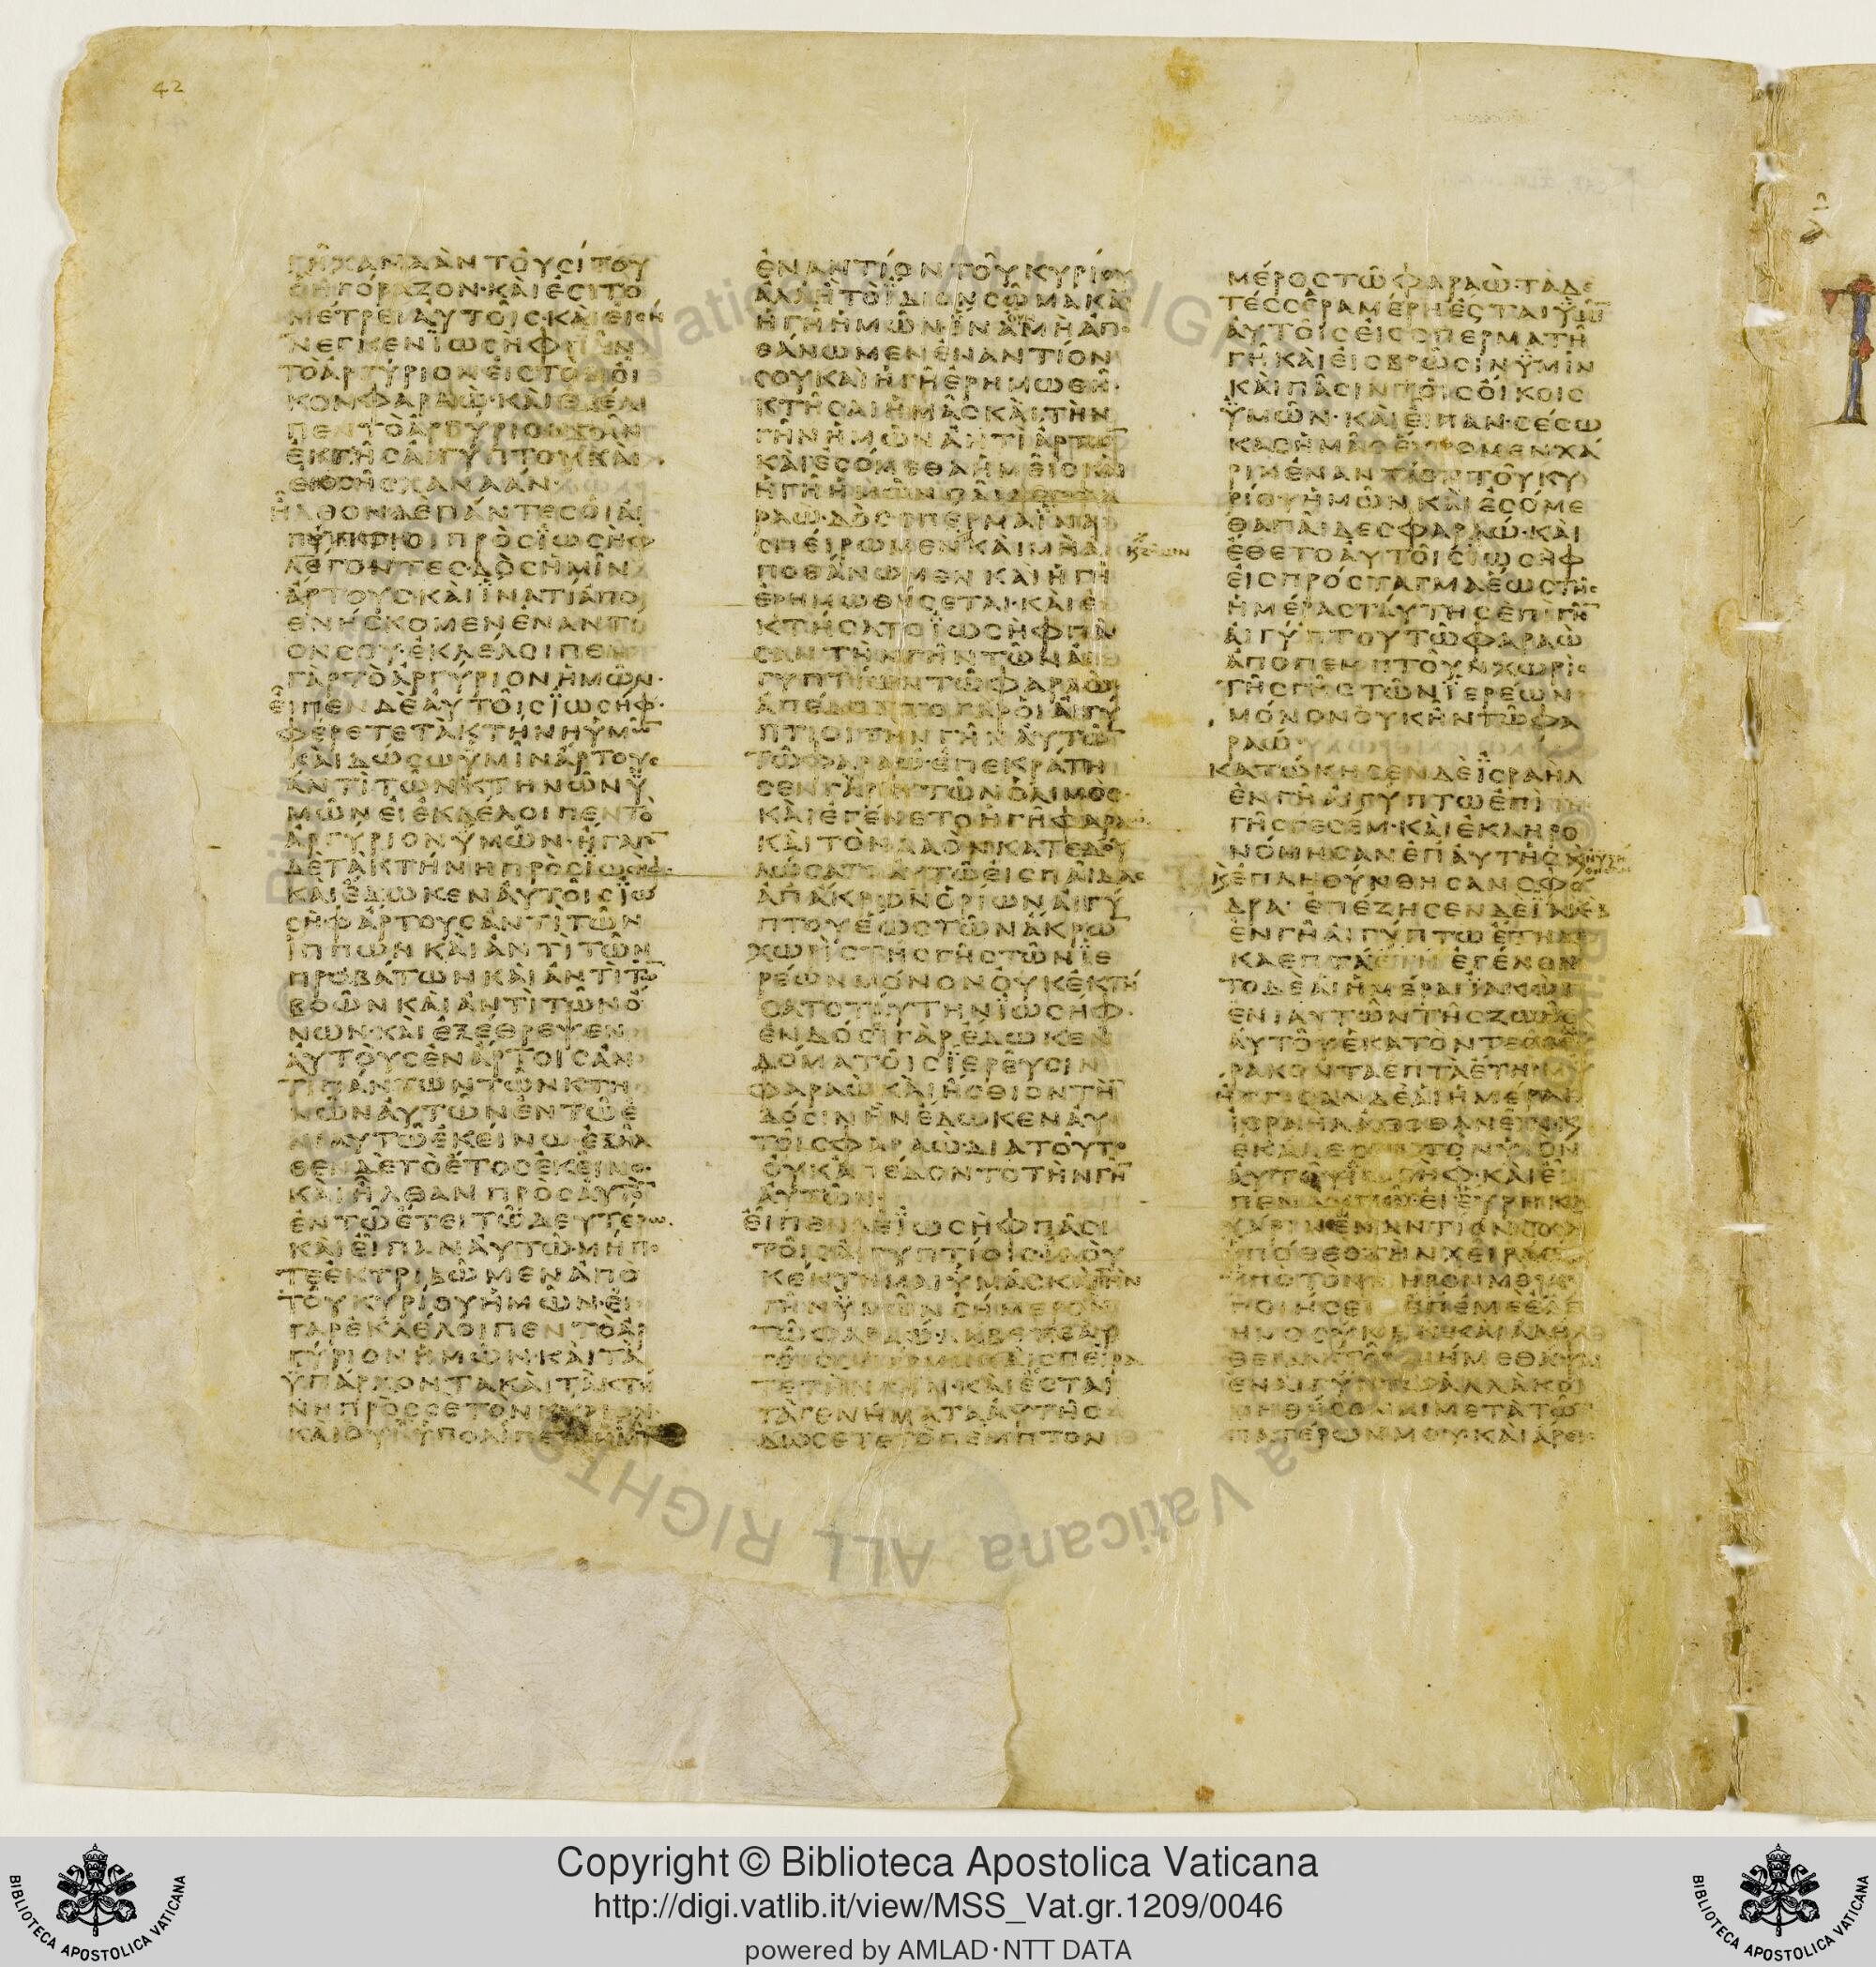 ΓΗΧΑΝΑΑΝΤΟΥϹΙΤΟΥ
ΟΥΗΓΟΡΑΖΟΝ·ΚΑΙΕϹΙΤΟ
ΜΕΤΡΕΙΑΥΤΟΙϹ·ΚΑΙΕΙϹΗ
ΝΕΓΚΕΝΪΩϹΗΦΠΑΝ
ΤΟΑΡΓΥΡΙΟΝΕΙϹΤΟΝΟΙ
ΚΟΝΦΑΡΑΩ·ΚΑΙΕΞΕΛΙ
ΠΕΝΤΟΑΡΓΥΡΙΟΝ
ΕΚΓΗϹΑΙΓΥΠΤΟΥΚΑΙ
ΕΚΓΗϹΧΑΝΑΑΝ·
ΗΛΘΟΝΔΕΠΑΝΤΕϹΟΙΑΙ
ΓΥΠΤΙΟΙΠΡΟϹΪΩϹΗΦ
ΛΕΓΟΝΤΕϹ·ΔΟϹΗΜΙΝ
ΑΡΤΟΥϹΚΑΙΪΝΑΤΙΑΠΟ
ΘΝΗϹΚΟΜΕΝΕΝΑΝΤΙ
ΟΝϹΟΥ·ΕΚΛΕΛΟΙΠΕΝ
ΓΑΡΤΟΑΡΓΥΡΙΟΝΗΜΩΝ·
ΕΙΠΕΝΔΕΑΥΤΟΙϹΪΩϹΗΦ·
ΦΕΡΕΤΕΤΑΚΤΗΝΗΫΜΩ̅
ΚΑΙΔΩϹΩΫΜΙΝΑΡΤΟΥϹ
ΑΝΤΙΤΩΝΚΤΗΝΩΝΫ
ΜΩΝΕΙΕΚΛΕΛΟΙΠΕΝΤΟ
ΑΡΓΥΡΙΟΝΫΜΩΝ·ΗΓΑΓΟ̅
ΔΕΤΑΚΤΗΝΗΠΡΟϹΪΩϹΗΦ·
ΚΑΙΕΔΩΚΕΝΑΥΤΟΙϹΪΩ
ϹΗΦΑΡΤΟΥϹΑΝΤΙΤΩΝ
ΪΠΠΩΝΚΑΙΑΝΤΙΤΩΝ
ΠΡΟΒΑΤΩΝΚΑΙΑΝΤΙΤΩ̅
ΒΟΩΝΚΑΙΑΝΤΙΤΩΝΟ
ΝΩΝ·ΚΑΙΕΞΕΘΡΕΨΕΝ
ΑΥΤΟΥϹΕΝΑΡΤΟΙϹΑΝ
ΤΙΠΑΝΤΩΝΤΩΝΚΤΗ
ΝΩΝΑΥΤΩΝΕΝΤΩΕ
ΝΙΑΥΤΩΕΚΕΙΝΩ·ΕΞΗΛ
ΘΕΝΔΕΤΟΕΤΟϹΕΚΕΙΝΟ·
ΚΑΙΗΛΘΑΝΠΡΟϹΑΥΤΟ̅
ΕΝΤΩΕΤΕΙΤΩΔΕΥΤΕΡΩ·
ΚΑΙΕΙΠΑΝΑΥΤΩ·ΜΗΠΟ
ΤΕΕΚΤΡΙΒΩΜΕΝΑΠΟ
ΤΟΥΚΥΡΙΟΥΗΜΩΝ·ΕΙ
ΓΑΡΕΚΛΕΛΟΙΠΕΝΤΟΑΡ
ΓΥΡΙΟΝΗΜΩΝ·ΚΑΙΤΑ
ΫΠΑΡΧΟΝΤΑΚΑΙΤΑΚΤΗ
ΝΗΠΡΟϹϹΕΤΟΝΚΥΡΙΟΝ·
ΚΑΙΟΥΧΫΠΟΛΕΙΠΕΤΑΙΗΜΙ̅
ΕΝΑΝΤΙΟΝΤΟΥΚΥΡΙΟΥ
ΑΛΛΗΤΟΪΔΙΟΝϹΩΜΑΚΑΙ
ΗΓΗΗΜΩΝ·ΪΝΑΜΗΑΠΟ
ΟΥΝ
ΘΑΝΩΜΕΝΕΝΑΝΤΙΟΝ
ϹΟΥΚΑΙΗΓΗΕΡΗΜΩΘΗ·
ΚΤΗϹΑΙΗΜΑϹΚΑΙΤΗΝ
ΓΗΝΗΜΩΝΑΝΤΙΑΡΤΩ̅
ΚΑΙΕϹΟΜΕΘΑΗΜΕΙϹΚΑΙ
ΗΓΗΗΜΩΝΠΑΙΔΕϹΦΑ
ΡΑΩ·ΔΟϹϹΠΕΡΜΑΪΝΑ
ϹΠΕΙΡΩΜΕΝΚΑΙΜΗΑ
ΠΟΘΑΝΩΜΕΝΚΑΙΗΓΗ
ΕΡΗΜΩΘΗϹΕΤΑΙ·ΚΑΙΕ
ΚΤΗϹΑΤΟΪΩϹΗΦΠΑ
ϹΑΝΤΗΝΓΗΝΤΩΝΑΙ
ΓΥΠΤΙΩΝΤΩΦΑΡΑΩ·
ΑΠΕΔΟΝΤΟΓΑΡΟΙΑΙΓΥ
ΠΤΙΟΙΤΗΝΓΗΝΑΥΤΩ̅
ΤΩΦΑΡΑΩ·ΕΠΕΚΡΑΤΗ
ϹΕΝΓΑΡΑΥΤΩΝΟΛΙΜΟϹ·
ΚΑΙΕΓΕΝΕΤΟΗΓΗΦΑΡΑΩ·
ΚΑΙΤΟΝΛΑΟΝΚΑΤΕΔΟΥ
ΛΩϹΑΤΟΑΥΤΩΕΙϹΠΑΙΔΑϹ
ΑΠΑΚΡΩΝΟΡΙΩΝΑΙΓΥ
ΠΤΟΥΕΩϹΤΩΝΑΚΡΩ̅
ΧΩΡΙϹΤΗϹΓΗϹΤΩΝΪΕ
ΡΕΩΝΜΟΝΟΝΟΥΚΕΚΤΗ
ϹΑΤΟΤΑΥΤΗΝΪΩϹΗΦ·
ΕΝΔΟϹΙΓΑΡΕΔΩΚΕΝ
ΔΟΜΑΤΟΙϹΪΕΡΕΥϹΙΝ
ΦΑΡΑΩΚΑΙΗϹΘΙΟΝΤΗ̅
ΔΟϹΙΝΗΝΕΔΩΚΕΝΑΥ
ΤΟΙϹΦΑΡΑΩ·ΔΙΑΤΟΥΤΟ
ΟΥΚΑΠΕΔΟΝΤΟΤΗΝΓΗ̅
ΑΥΤΩΝ·
ΕΙΠΕΝΔΕΪΩϹΗΦΠΑϹΙ
ΤΟΙϹΑΙΓΥΠΤΙΟΙϹ·ΙΔΟΥ
ΚΕΚΤΗΜΑΙΫΜΑϹΚΑΙΤΗΝ
ΓΗΝΫΜΩΝϹΗΜΕΡΟΝ
ΤΩΦΑΡΑΩ·ΛΑΒΕΤΕΕΑΥ
ΤΟΙϹϹΠΕΡΜΑΚΑΙϹΠΕΙΡΑ
ΤΕΤΗΝΓΗΝ·ΚΑΙΕϹΤΑΙ
ΤΑΓΕΝΗΜΑΤΑΑΥΤΗϹ
ΔΩϹΕΤΕΤΟΠΕΜΠΤΟΝ
ΜΕΡΟϹΤΩΦΑΡΑΩ·ΤΑΔΕ
ΤΕϹϹΕΡΑΜΕΡΗΕϹΤΑΙΫΜΙ̅
ΑΥΤΟΙϹΕΙϹϹΠΕΡΜΑΤΗ
ΓΗΚΑΙΕΙϹΒΡΩϹΙΝΫΜΙΝ
ΚΑΙΠΑϹΙΝΤΟΙϹΟΙΚΟΙϹ
ΫΜΩΝ·ΚΑΙΕΙΠΑΝ·ϹΕϹΩ
ΚΑϹΗΜΑϹΕΥΡΟΜΕΝΧΑ
ΡΙΝΕΝΑΝΤΙΟΝΤΟΥΚΥ
ΡΙΟΥΗΜΩΝΚΑΙΕϹΟΜΕ
ΘΑΠΑΙΔΕϹΦΑΡΑΩ·ΚΑΙ
ΕΘΕΤΟΑΥΤΟΙϹΪΩϹΗΦ
ΕΙϹΠΡΟϹΤΑΓΜΑΕΩϹΤΗϹ
ΗΜΕΡΑϹΤΑΥΤΗϹΕΠΙΓΗ̅
ΑΙΓΥΠΤΟΥΤΩΦΑΡΑΩ
ΑΠΟΠΕΜΠΤΟΥΝΧΩΡΙϹ
ΤΗϹΓΗϹΤΩΝΪΕΡΕΩΝ
ΜΟΝΟΝΟΥΚΗΝΤΩΦΑ
ΡΑΩ·
ΚΑΤΩΚΗϹΕΝΔΕΪϹΡΑΗΛ
ΕΝΓΗΑΙΓΥΠΤΩΕΠΙ
ΓΗϹΓΕϹΕΜ·ΚΑΙΕΚΛΗΡΟ
ΝΟΜΗϹΑΝΕΠΑΥΤΗϹ
ΕΠΛΗΘΥΝΘΗϹΑΝϹΦΟ
ΔΡΑ·ΕΠΕΖΗϹΕΝΔΕΪΑΚΩΒ
ΕΝΓΗΑΙΓΥΠΤΩΕΤΗΔΕ
ΚΑΕΠΤΑ·ΕΓΕΝΟΝ
ΤΟΔΕΑΙΗΜΕΡΑΙΪΑΚΩΒ
ΕΝΙΑΥΤΩΝΤΗϹΖΩΗϹ
ΑΥΤΟΥΕΚΑΤΟΝΤΕϹϹΕ
ΡΑΚΟΝΤΑΕΠΤΑΕΤΗ·
ΗΓΓΙϹΑΝΔΕΑΙΗΜΕΡΑΙ
ΪϹΡΑΗΛΑΠΟΘΑΝΕΙΝΚΑΙ
ΕΚΑΛΕϹΕΝΤΟΝΥΙΟΝ
ΑΥΤΟΥΪΩϹΗΦ·ΚΑΙΕΙ
ΠΕΝΑΥΤΩ·ΕΙΕΥΡΗΚΑ
ΧΑΡΙΝΕΝΑΝΤΙΟΝϹΟΥ
ΫΠΟΘΕϹΤΗΝΧΕΙΡΑϹΟΥ
ΫΠΟΤΟΝΜΗΡΟΝΜΟΥ·ΚΑΙ
ΠΟΙΗϹΕΙϹΕΠΕΜΕΕΛΕ
ΗΜΟϹΥΝΗΝΚΑΙΑΛΗ
ΘΕΙΑΝΤΟΥΜΗΜΕΘΑΨΑΙ
ΕΝΑΙΓΥΠΤΩΑΛΛΑΚΟΙ
ΜΗΘΗϹΟΜΑΙΜΕΤΑΤΩ̅
ΠΑΤΕΡΩΝΜΟΥ·ΚΑΙΑΡΕΙϹ
42
Copyright © Biblioteca Apostolica Vaticana
http://digi.vatlib.it/view/MSS_Vat.gr.1209/0046
powered by AMLAD·NTT DATA
BIBLIOTECA APOSTOLICA VATICANA
BIBLIOTECA APOSTOLICA VATICANA